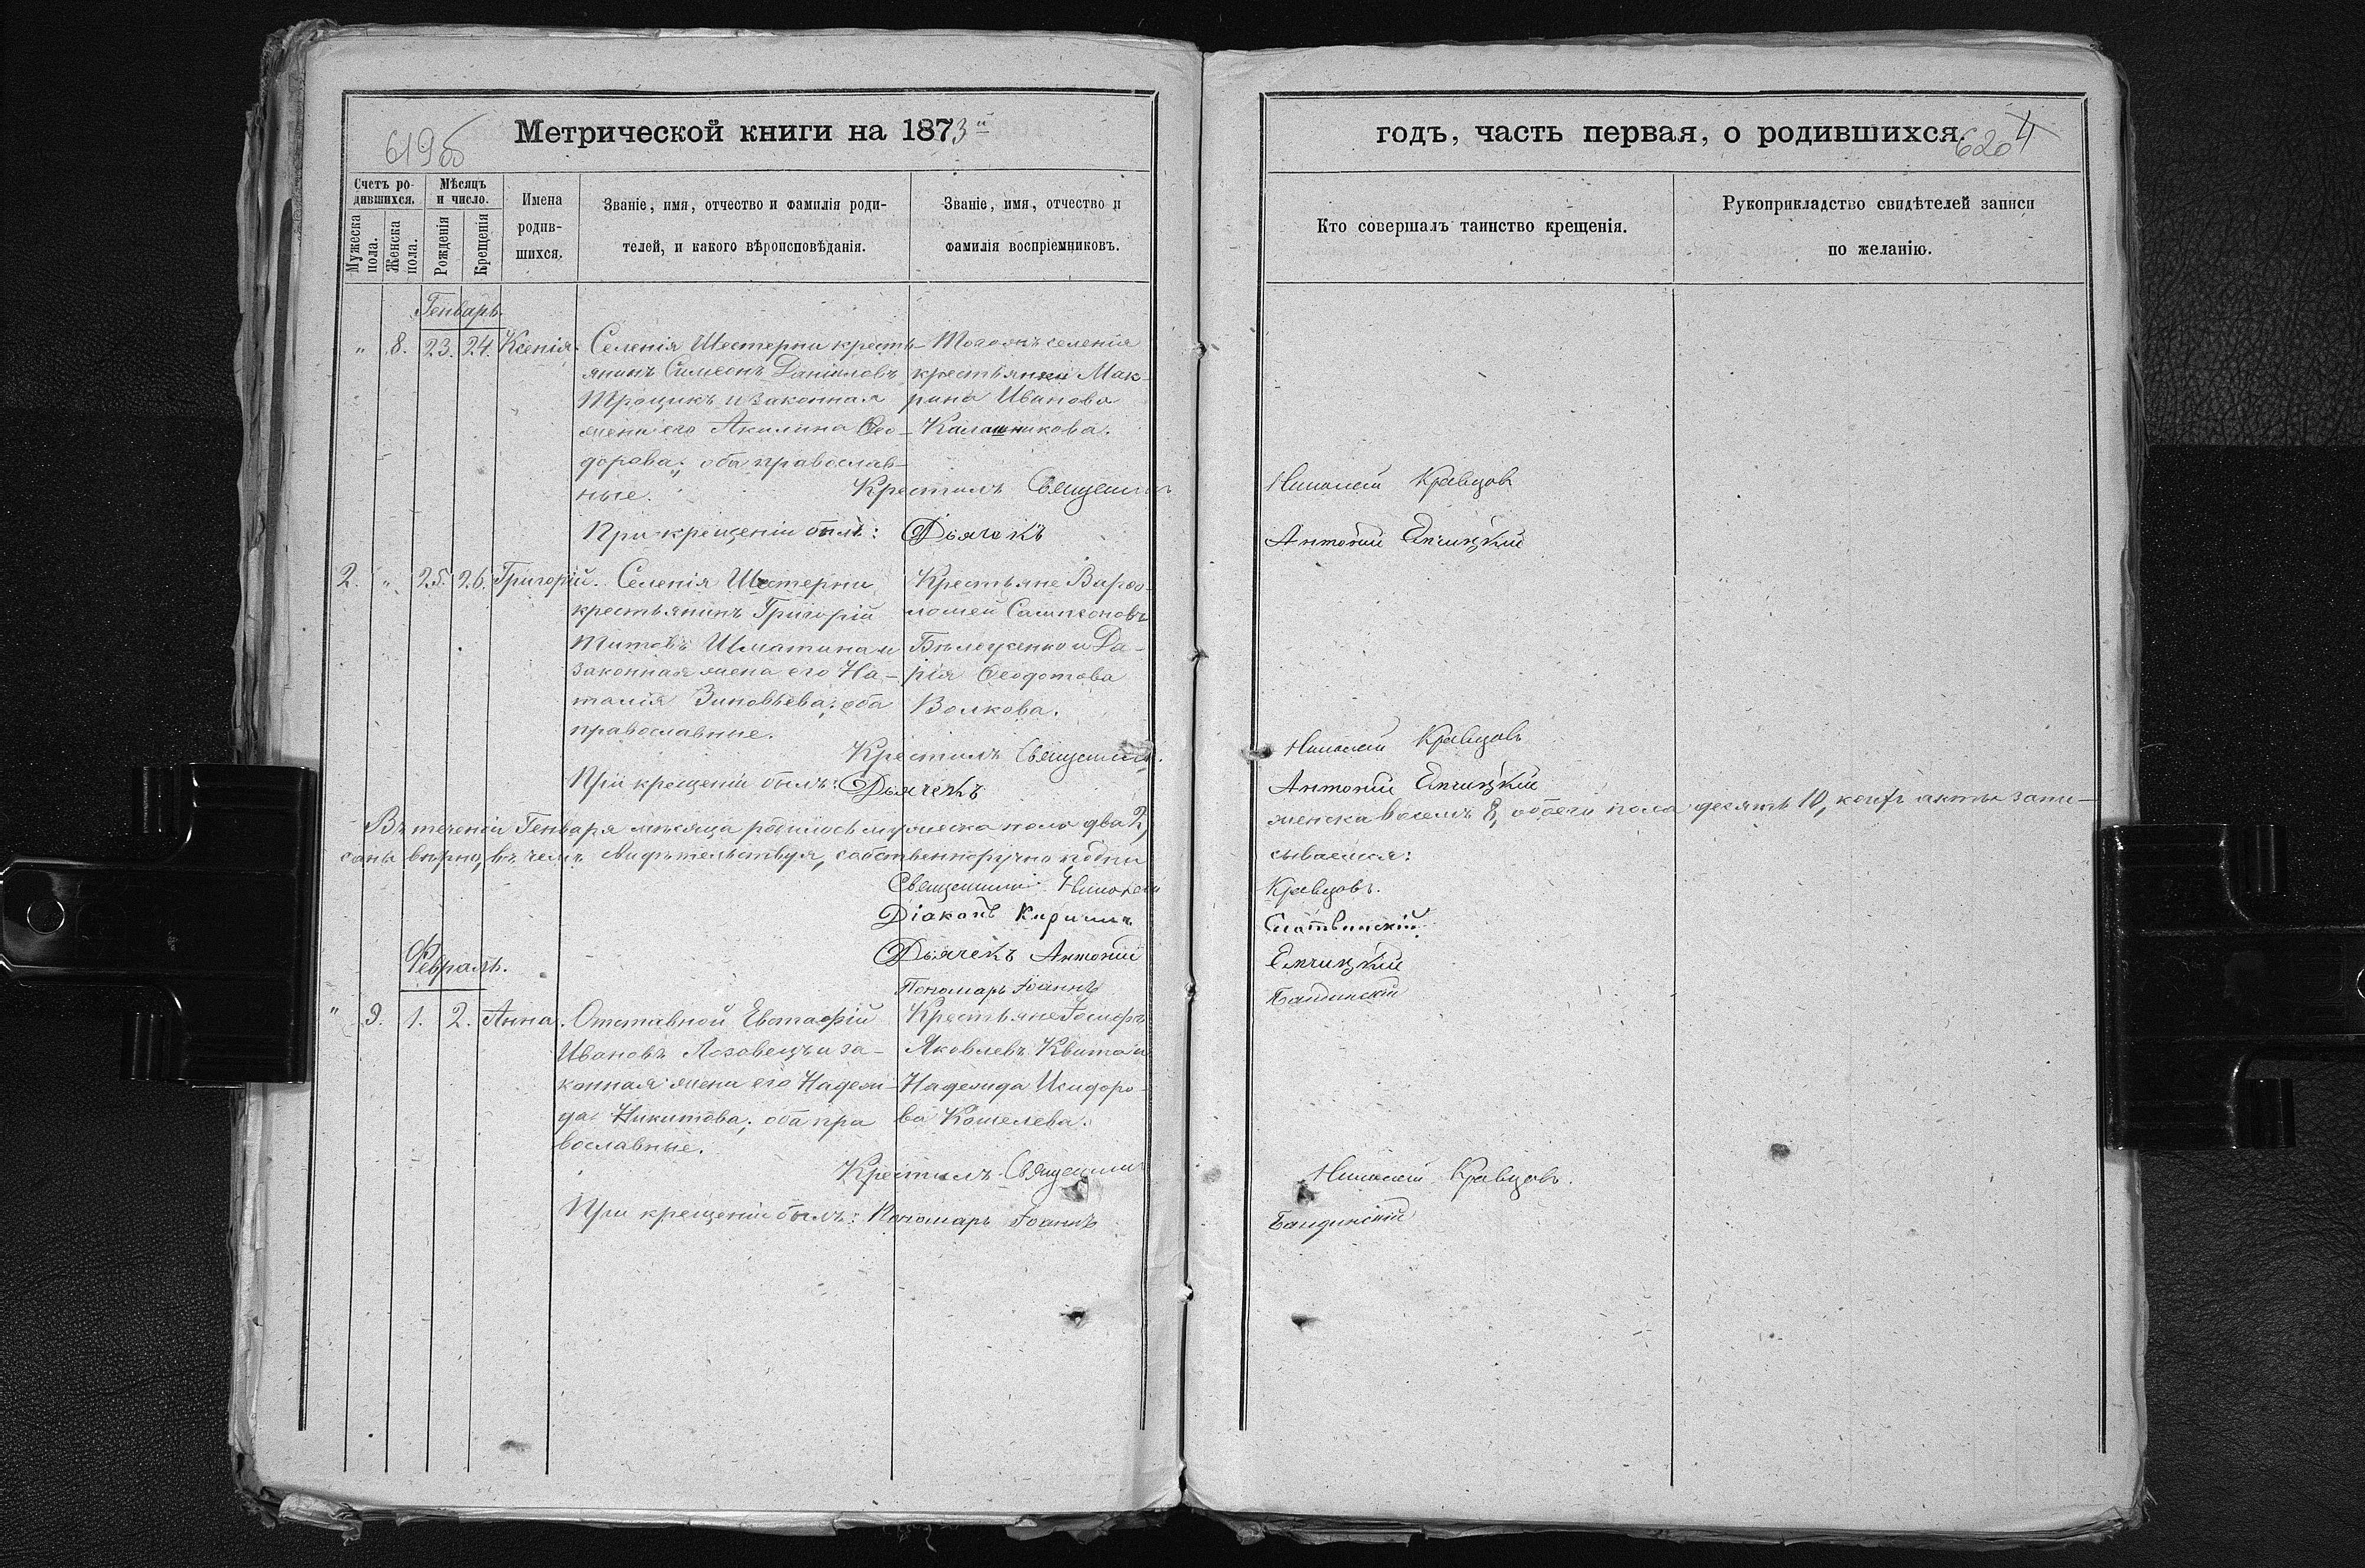 619 об
Метрической книги на 1873й
годъ, часть первая, о родившихся.
620 4
Счетъ ро-
дившихся.
Мужеска
пола.
Женска
пола.
Мѣсяцъ
и число.
Рожденія
Крещенія
Имена
родив-
шихся.
Званіе, имя, отчество и фамилія роди-
телей, и какого вѣроисповѣданія.
Званіе, имя, отчество и
фамилія воспріемниковъ.
Кто совершалъ таинство крещенія.
Рукоприкладство свидѣтелей записи
по желанію.
Генварь.
" 8. 23. 24. Ксенія.
Селенія Шестерни кресть-
янинъ Симеонъ Даніиловъ
Троцикъ и законная
жена его Акилина Ѳео-
дорова; оба православ-
ные.
Того же селенія
крестьянка Мак-
рина Иванова
Калашникова.
Крестилъ Священникъ
Николай Кравцовъ
При крещеніи былъ: Дьячокъ
Антоній Елчицкій
2. " 25. 26. Григорій.
Селенія Шестерни
крестьянинъ Григорій
Титовъ
законная жена его На-
талія Зиновьева; оба
православные.
Крестьяне Варѳо-
ломей Сампсоновъ
и Да-
рія Ѳеодотова
Волкова.
Крестилъ Священникъ
Николай Кравцовъ
При крещеніи былъ: Дьячекъ
Антоній Елчицкій
Въ теченіи Генваря мѣсяца родилось мужеска пола два 2,
женска восемь 8, обоего пола десять 10, коихъ акты запи-
саны вѣрно, въ чемъ свидѣтельствуя, собственноручно подпи-
сываемся:
Священникъ Николай
Кравцовъ.
Діаконъ Кириллъ
Дьячекъ Антоній
Елчицкій
Пономарь Іоаннъ
Февраль.
" 9. 1. 2. Анна.
Отставной Евстафій
Ивановъ Лозовецъ и за-
конная жена его Надеж-
да Никитова; оба пра
вославные.
Крестьяне Іосифъ
Яковлевъ Квитка и
Надежда Исидоро-
ва Кошелева.
Крестилъ Священникъ
Николай Кравцовъ.
При крещеніи былъ: Пономарь Іоаннъ